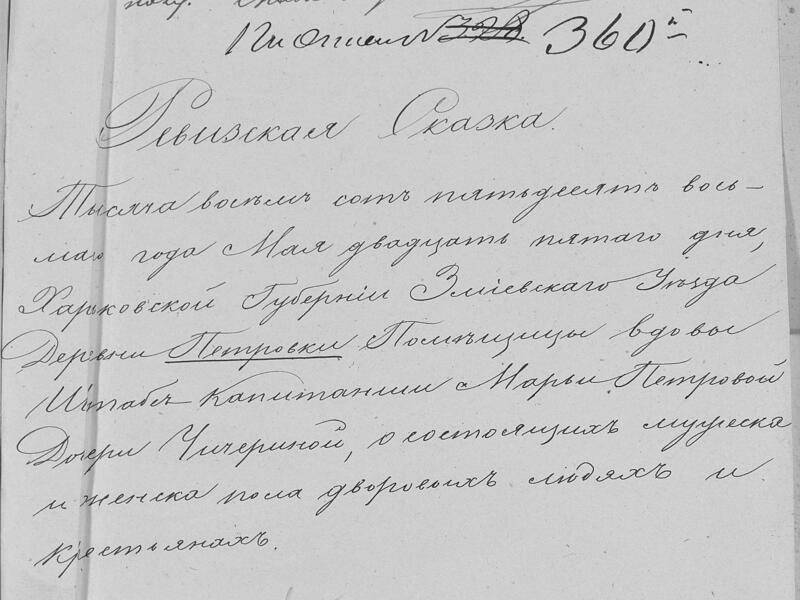 По описи № 328. 360
Ревизская Сказка.
Тысяча восемь сотъ пятьдесятъ вось-
маго года Мая двадцать пятаго дня,
Харьковской Губерніи Зміевскаго Уѣзда
Деревни Петровки Помѣщицы вдовы
Штабъ-Капитанши Марьи Петровой
Дочери Чичериной, о состоящихъ мужеска
и женска пола дворовыхъ людяхъ и
крестьянахъ.